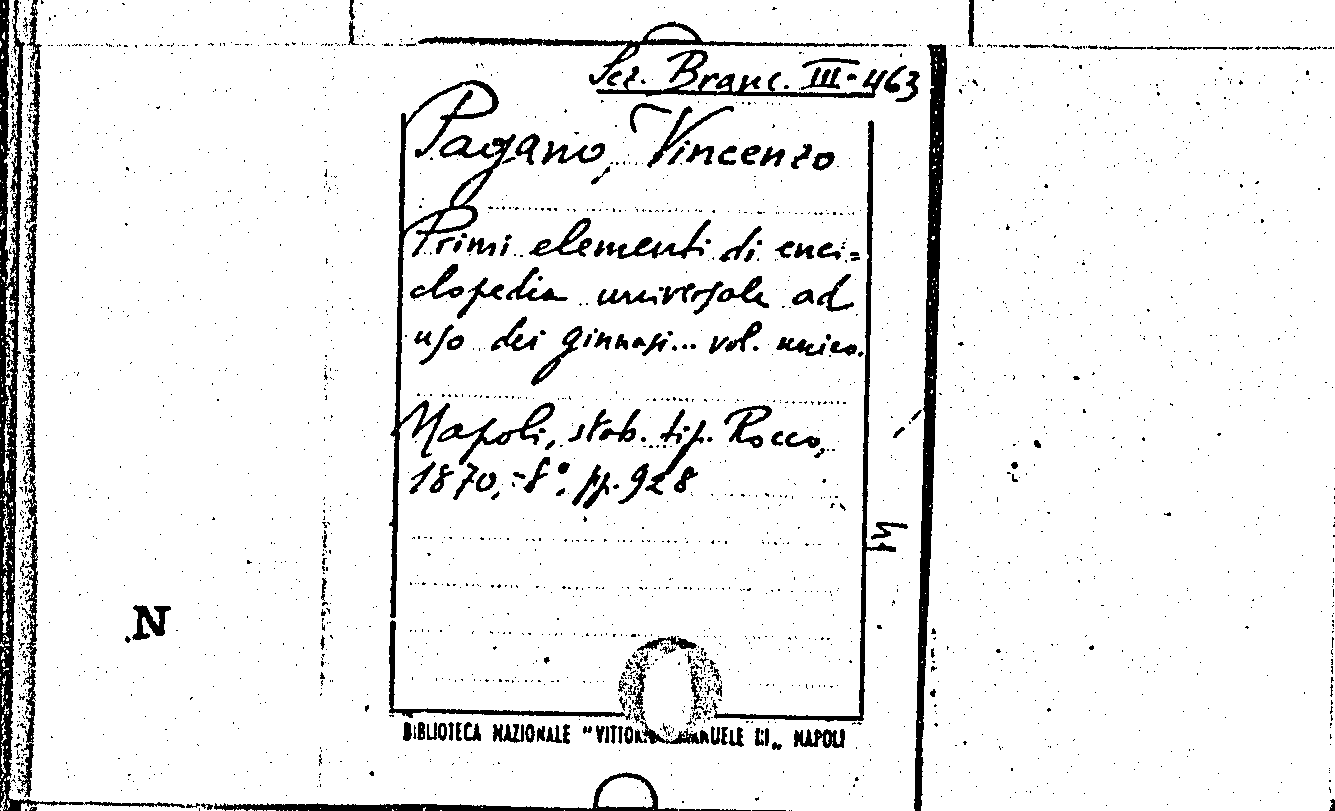 Sez. Branc. III-463
Pagano, Vincenzo
Primi elementi di enci=
clopedia universale ad
uso dei ginnasi... vol. unico.
Napoli, stab. tip. Rocco,
1870,-8°. pp. 928
N
BIBLIOTECA NAZIONALE "VITTORIO EMANUELE III„ NAPOLI